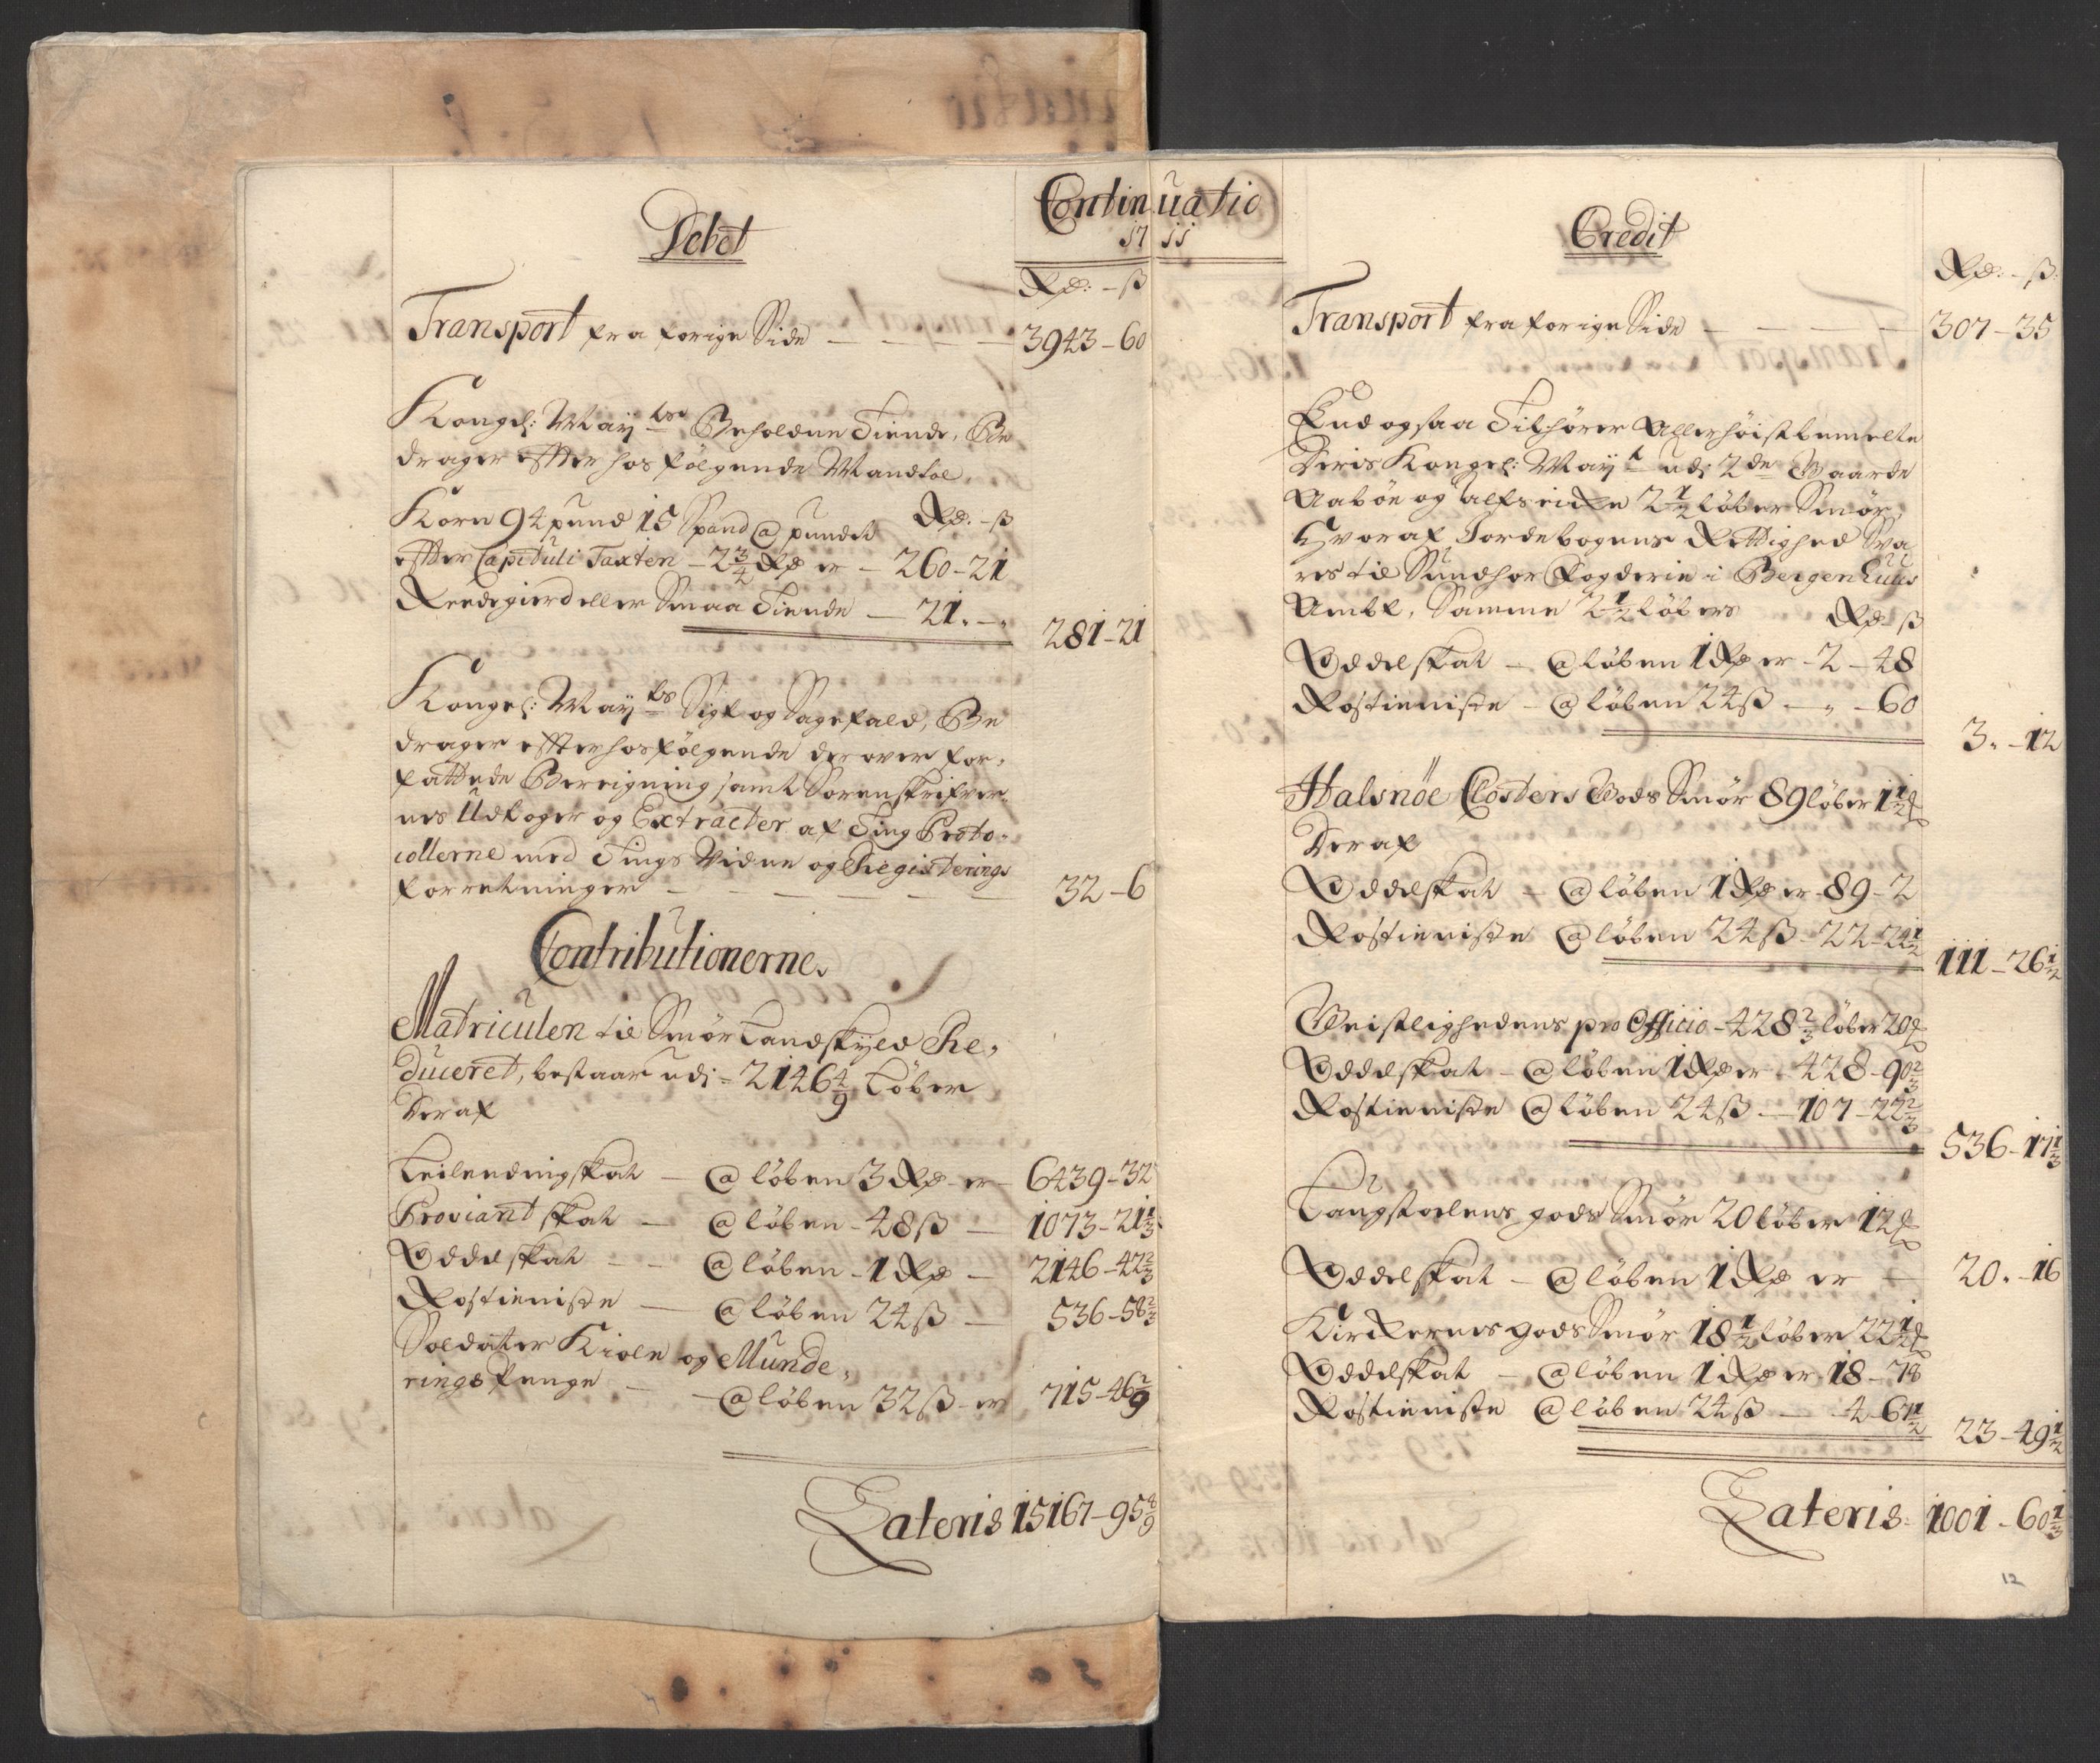 Continuatio
1711
Debet
Rd: - ß
Transport fra forige Side — — — — 3943 - 60
Kongel: May:ts Beholdne Tiende, Be
drager effter hos følgende Mandtal,
Korn 94 pund 15 Spand @ pundet Rd. - ß
effter Capituli Taxten - 2 3/4 Rd er - 260 - 21
Reedegierd eller Smaa Tiende — 21. - „
281 - 21
Kongel: May:ts Sigt og Sagefald, Be
drager effter hosfølgende derover for,
fattede Beregning samt Sorenskrifver,
nes Udtoger og Extracter af Ting Proto,
collerne med Tings Vidne og Registerings
forretninger — — — — — 32 - 6
Contributionerne.
Matriculen til Smør Landskyld Re,
duceret, bestaar udj = 2146 4/9 Løber
Deraf
Leilendingskat — @ løben 3 Rd - er - 6439 - 32
Proviant skat — @ løben - 48 ß — 1073 - 21 1/3
Oddelskat — - @ løben - 1 Rd — 2146 - 42 2/3
Rostieniste — @ løben 24 ß — 536 - 58 2/3
Soldater Kiole og Munde,
rings Penge — — @ løben 32 ß - er 715 - 46 2/9
Lateris 15167 - 95 8/9
Credit
Rd: - ß:
Transport fra forige Side — — — — 307 - 35
End ogsaa Tilhører Allerhøistbemelte
Deris Kongel: May:t udj 2de Gaarde
Aabøe og alfseide 2 1/2 løber Smør,
Hvoraf Jordebogens Rettighed Sva
res til Sundhor Fogderie i Bergenhuus
Ambt, Samme 2 1/2 løbers Rd - ß
Oddelskat — @ løben 1 Rd er - 2 - 48
Rostieniste - @ løben 24 ß — „ - 60
3. - 12
Halsnöe Closters Gods Smør 89 løber 1 1/2 ℔
Deraf
Oddelskat — @ løben 1 Rd er - 89 - 2
Rostieniste @ løben 24 ß - 22 - 24 1/2
111 - 26 1/2
Geistlighedens pro Officio - 428 2/3 løber 20 ℔
Oddelskat - @ løben 1 Rd er - 428 - 90 2/3
Rostieniste @ løben 24 ß — 107 - 22 2/3
536 - 17 1/3
Laugstolens gods Smør 20 løber 12 ℔
Oddelskat — @ løben 1 Rd er — 20. - 16
Kirckernes gods Smør 18 1/2 løber 22 1/2 ℔
Oddelskat — @ løben 1 Rd er 18 - 78
Rostieniste @ løben 24 ß — 4 - 67 1/2
23 - 49 1/2
Lateris - 1001 - 60 1/3
12